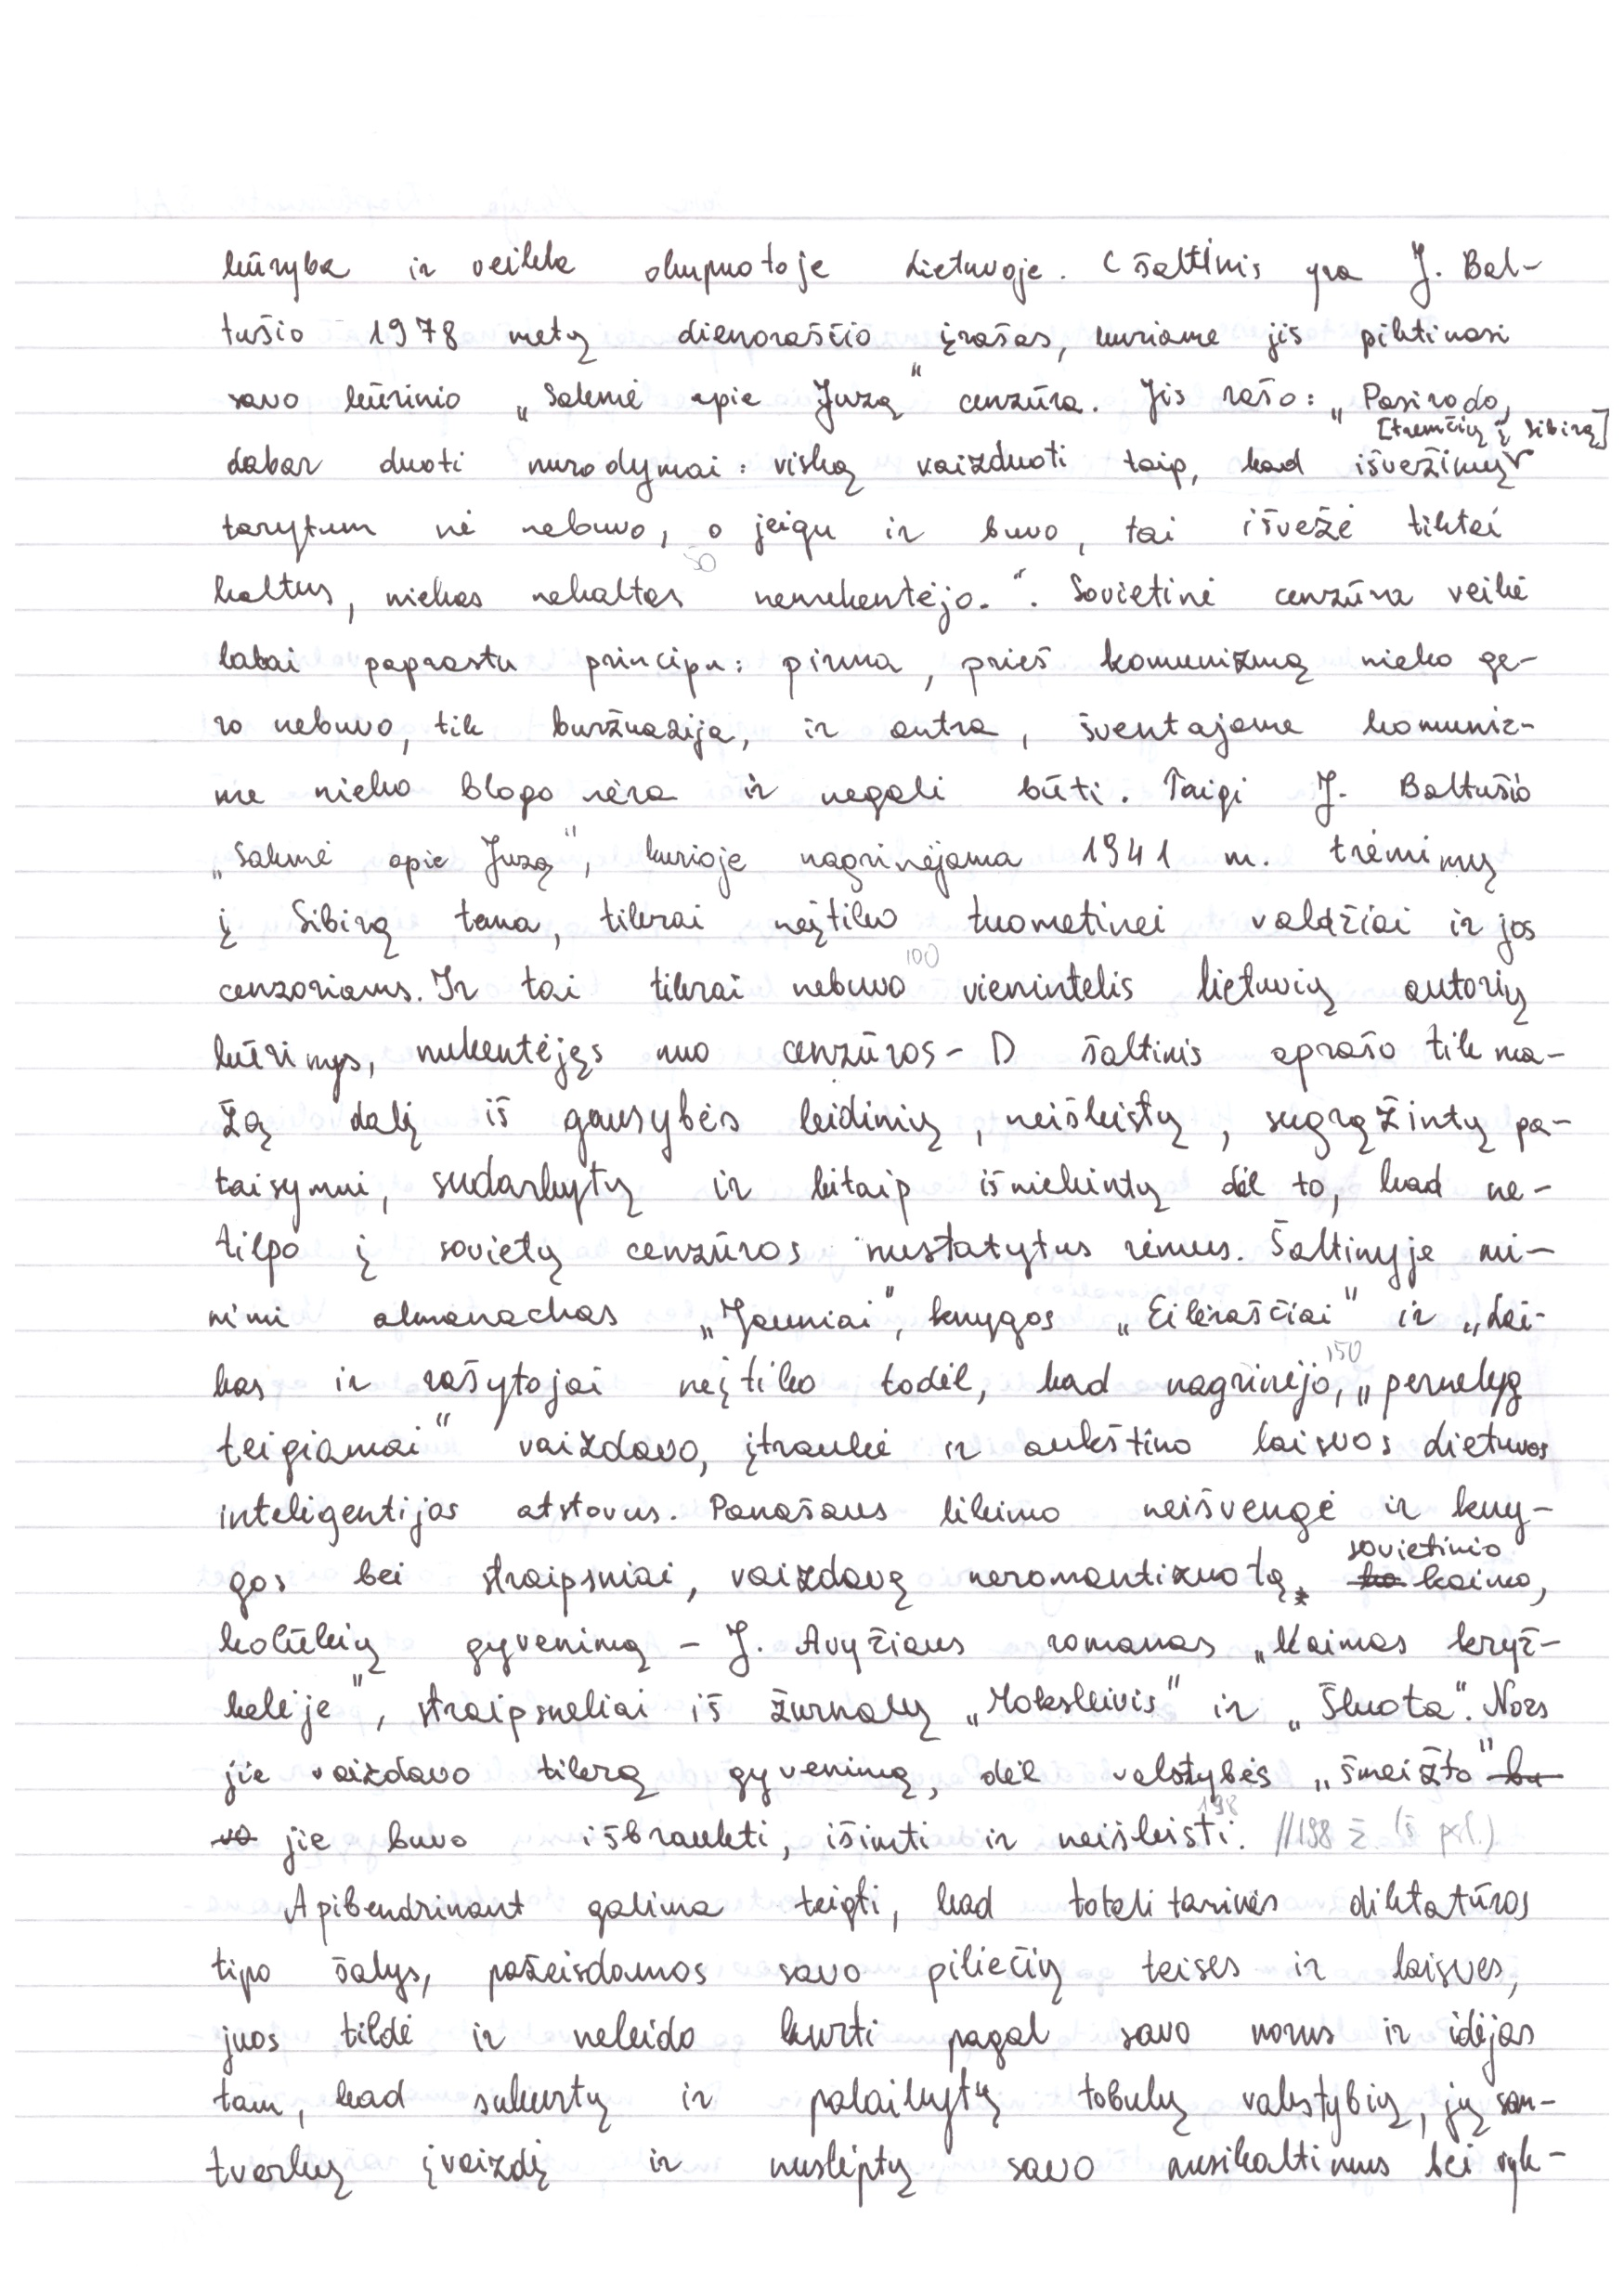 kūryba ir veikla okupuotoje Lietuvoje. C šaltinis yra J. Bal-
tušio 1978 metų dienoraščio įrašas, kuriame jis piktinasi
savo kūrinio „Sakmė apie Juzą“ cenzūra. Jis rašo: „Pasirodo,
[tremčių į Sibirą]
dabar duoti nurodymai: viską vaizduoti taip, kad išvežimų
tarytum nė nebuvo, o jeigu ir buvo, tai išvežė tiktai
50
kaltus, niekas nekaltas nenukentėjo.“. Sovietinė cenzūra veikė
labai paprastu principu: pirma, prieš komunizmą nieko ge-
ro nebuvo, tik buržuazija, ir antra, šventajame komuniz-
me nieko blogo nėra ir negali būti. Taigi J. Baltušio
„Sakmė apie Juzą“, kurioje nagrinėjama 1941 m. trėmimų
į Sibirą tema, tikrai neįtiko tuometinei valdžiai ir jos
100
cenzoriams. Ir tai tikrai nebuvo vienintelis lietuvių autorių
kūrinys, nukentėjęs nuo cenzūros - D šaltinis aprašo tik ma-
žą dalį iš gausybės leidinių, neišleistų, sugrąžintų pa-
taisymui, sudarkytų ir kitaip išniekintų dėl to, kad ne-
tilpo į sovietų cenzūros nustatytus rėmus. Šaltinyje mi-
nimi almanachas „Jauniai“, knygos „Eilėraščiai“ ir „Lai-
150
kas ir rašytojai neįtiko todėl, kad nagrinėjo, „pernelyg
teigiamai“ vaizdavo, įtraukė ir aukštino laisvos Lietuvos
inteligentijos atstovus. Panašaus likimo neišvengė ir kny-
sovietinio
gos bei straipsniai, vaizdavę neromantizuotą ka kaimo,
kolūkių gyvenimą - J. Avyžiaus romanas „Kaimas kryž-
kelėje“, straipsneliai iš žurnalų „Moksleivis“ ir „Šluota“. Nors
jie vaizdavo tikrą gyvenimą, dėl valstybės „šmeižto“ bu
198
vo jie buvo išbraukti, išimti ir neišleisti. //198 ž. (š psl.)
Apibendrinant galima teigti, kad totalitarinės diktatūros
tipo šalys, pažeisdamos savo piliečių teises ir laisves,
juos tildė ir neleido kurti pagal savo norus ir idėjas
tam, kad sukurtų ir palaikytų tobulų valstybių, jų san-
tvarkų įvaizdį ir nuslėptų savo nusikaltimus bei syk-